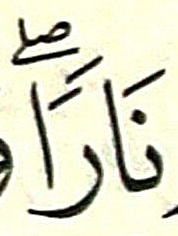 نَارًاۖ